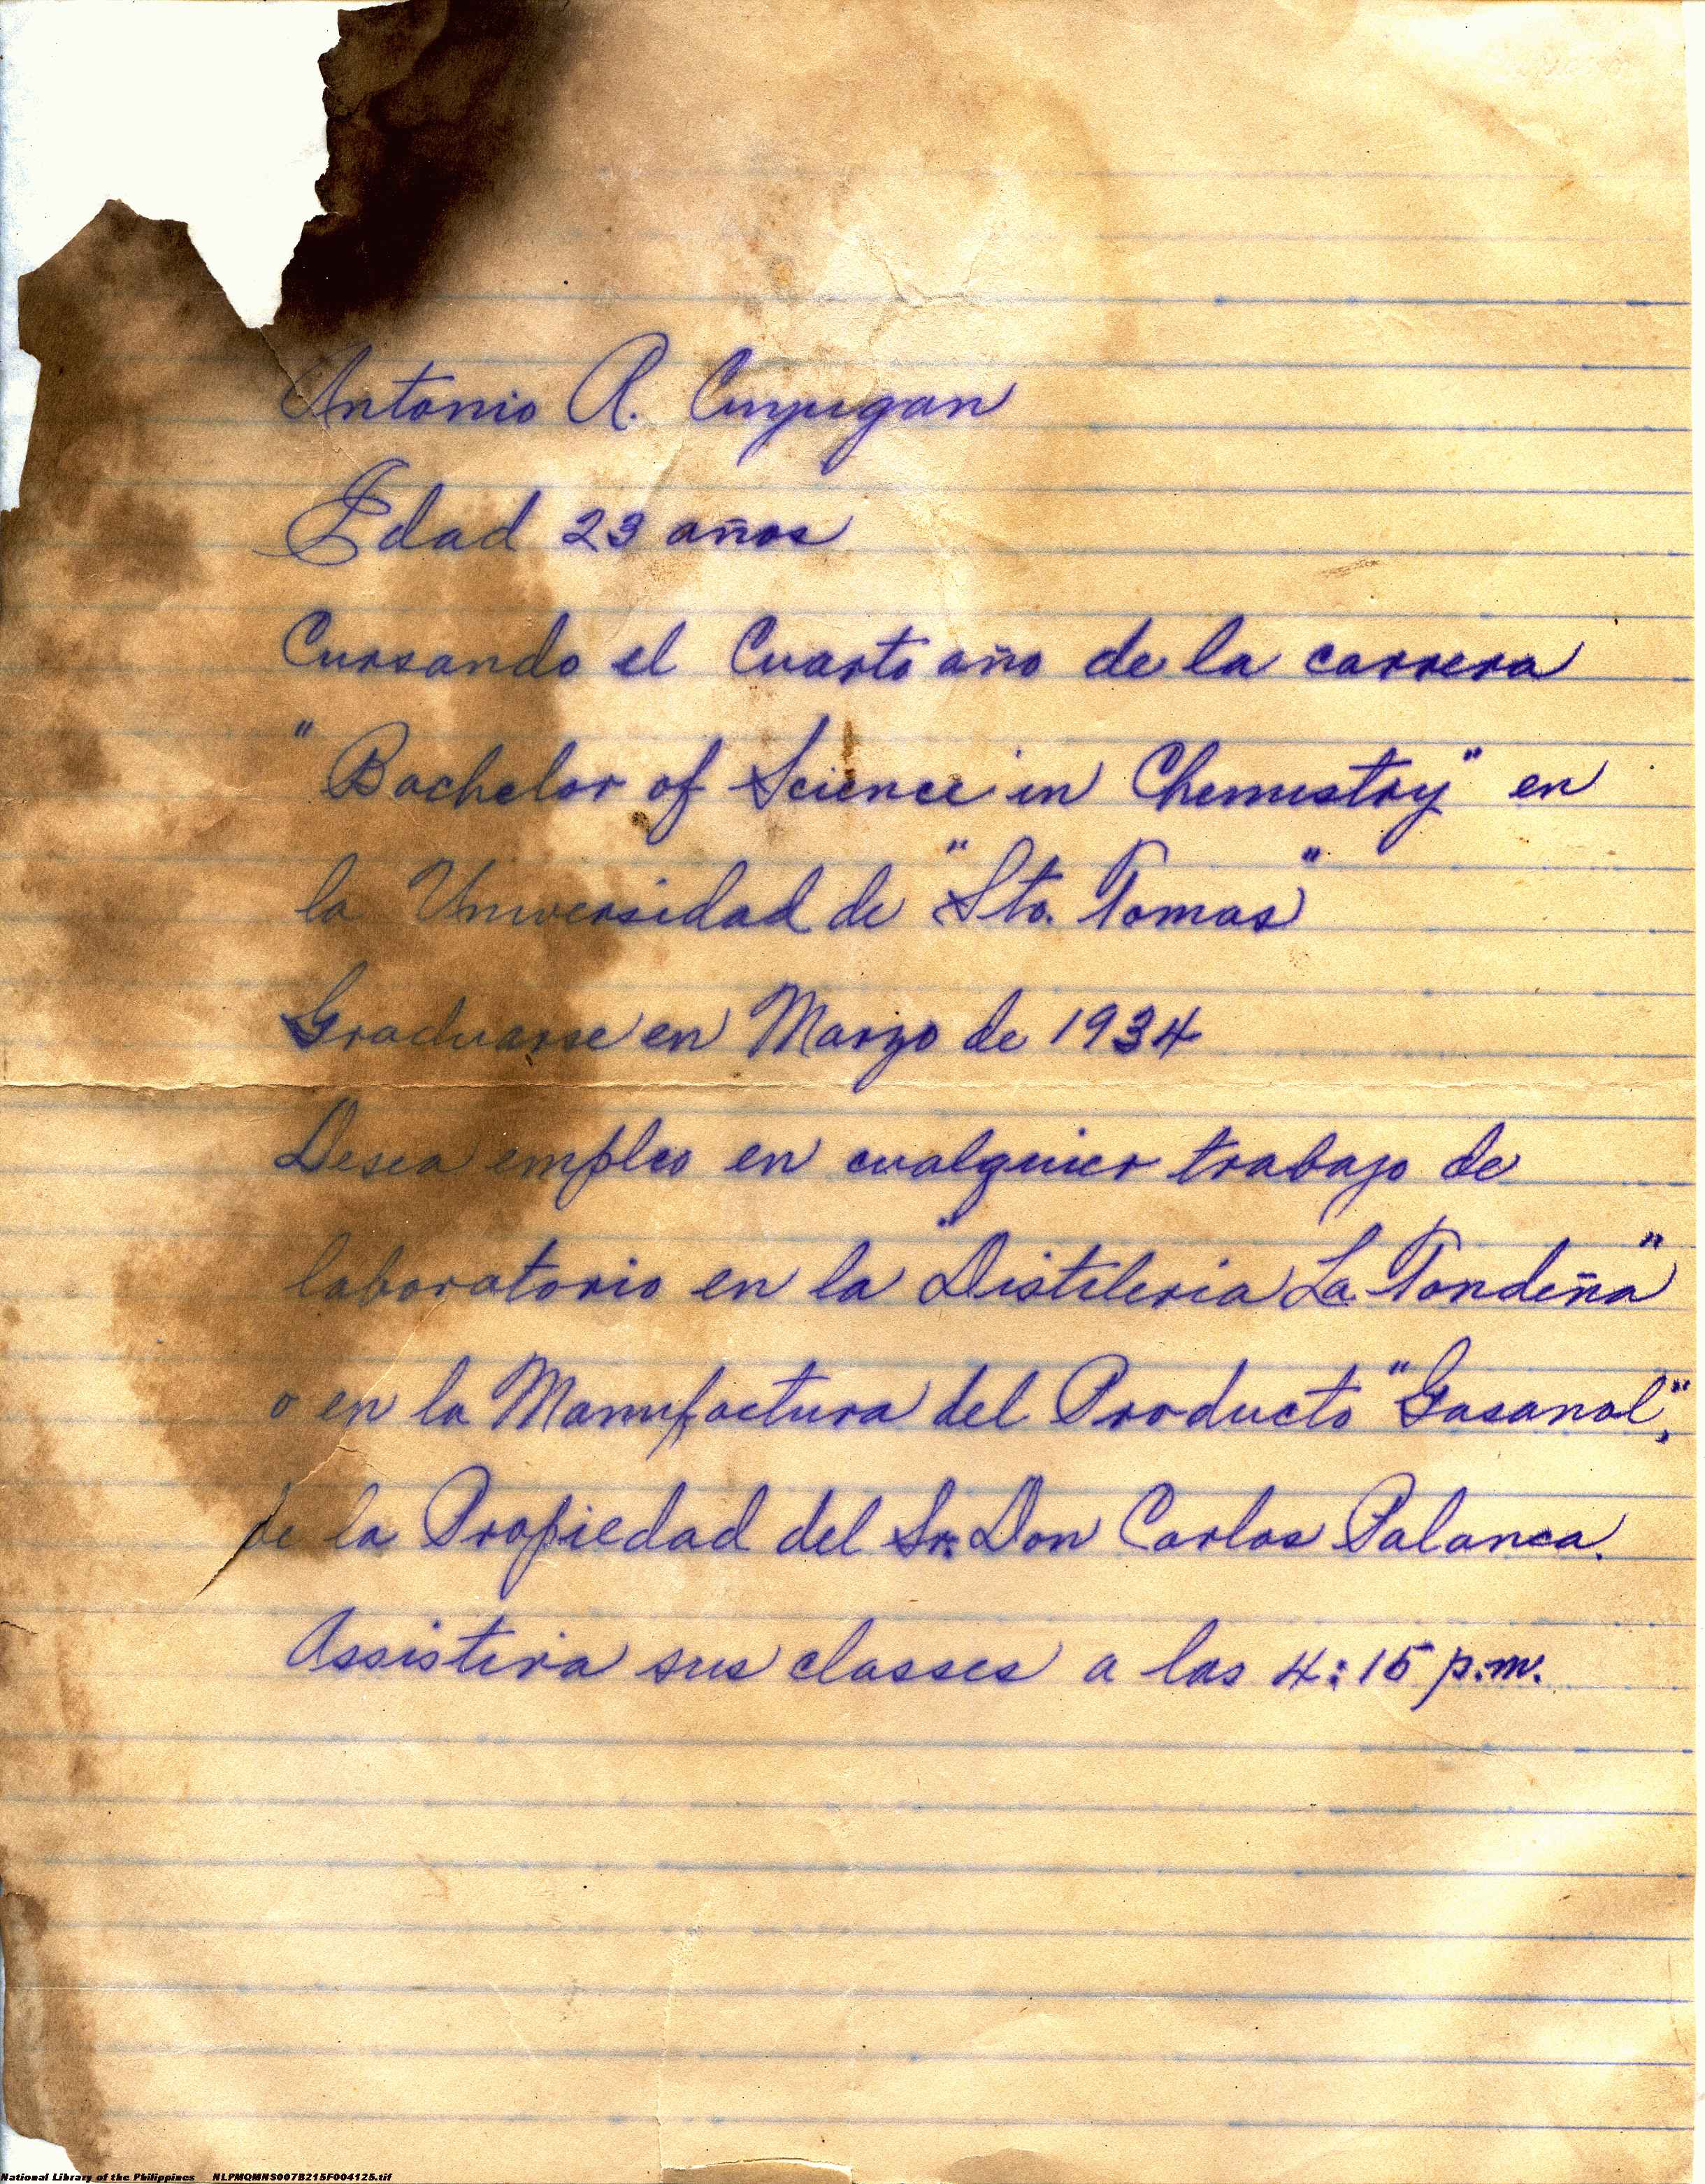 Antonio R. Cuyugan
Edad 23 años
Cursando el Cuarto año de la carrera
"Bachelor of Science in Chemistry" en
la Universidad de "Sto. Tomas"
Graduarse en Marzo de 1934
Desea empleo en cualquier trabajo de
laboratorio en la "Distileria La Tondeña"
o en la Manufactura del Producto "Gasanol",
de la Propiedad del Sr. Don Carlos Palanca.
Assistira sus classes a las 4:15 p.m.
National Library of the Philippines NLPMQMNS007B215F004125.tif